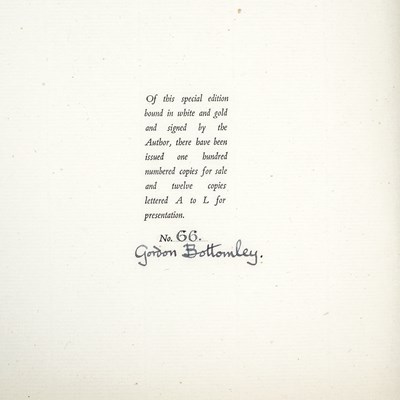 Of this special edition
bound in white and gold
and signed by the
Author, there have been
issued one hundred
numbered copies for sale
and twelve copies
lettered A to L for
presentation.
No. 66.
Gordon Bottomley.